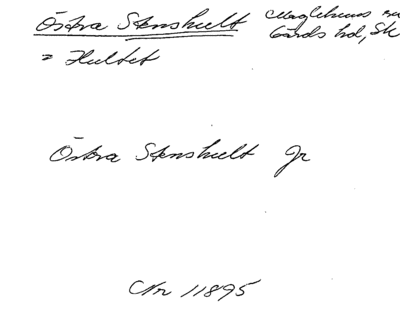 Östra Stenshult Maglehems sn
Gärds hd, Sk
= Hultet
Östra Stenshult Gr
CNr 11895